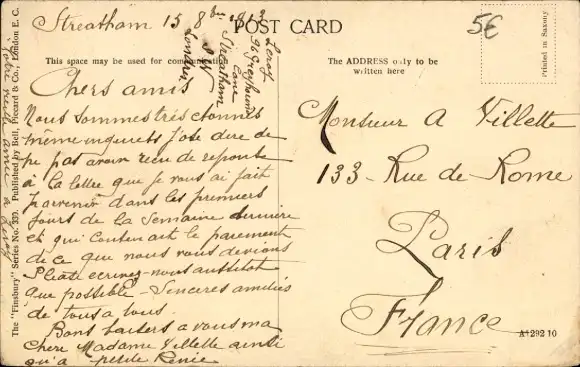 Streatham 15 8bre 1913
POST CARD
5€
This space may be used for communication
The ADDRESS only to be
written here
Printed in Saxony
Leroy
96 Greyhound
Lane
Streatham
S W
Londres
Chers amis
Nous sommes très étonnés
même inquiets j'ose dire de
ne pas avoir recu de reponse
à la lettre que je vous ai fait
parvenir dans les premiers
jours de la semaine dernière
et qui contenait le parement
de ce que nous vous devions
ecrivez-nous aussitôt
que possible - Sinceres amitiés
de tous a tous.
Bons baisers a vous ma
chere Madame Villette ainsi
qu'a petite Renée
Monsieur A Villette
133 - Rue de Rome
Paris
France
A 292 10
The "Finsbury" Series No. 339. Published by Bell, Piccard & Co., London E. C.